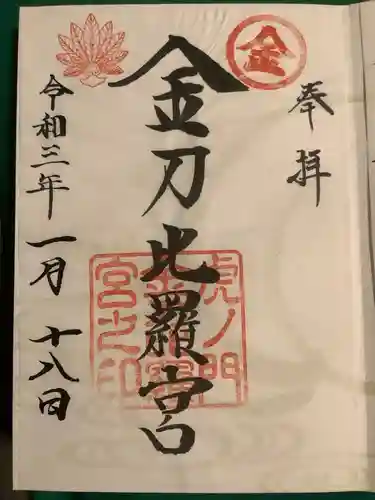 奉拝
金
金刀比羅宮
虎ノ門
金刀比羅
宮之印
令和三年 一月 十八日